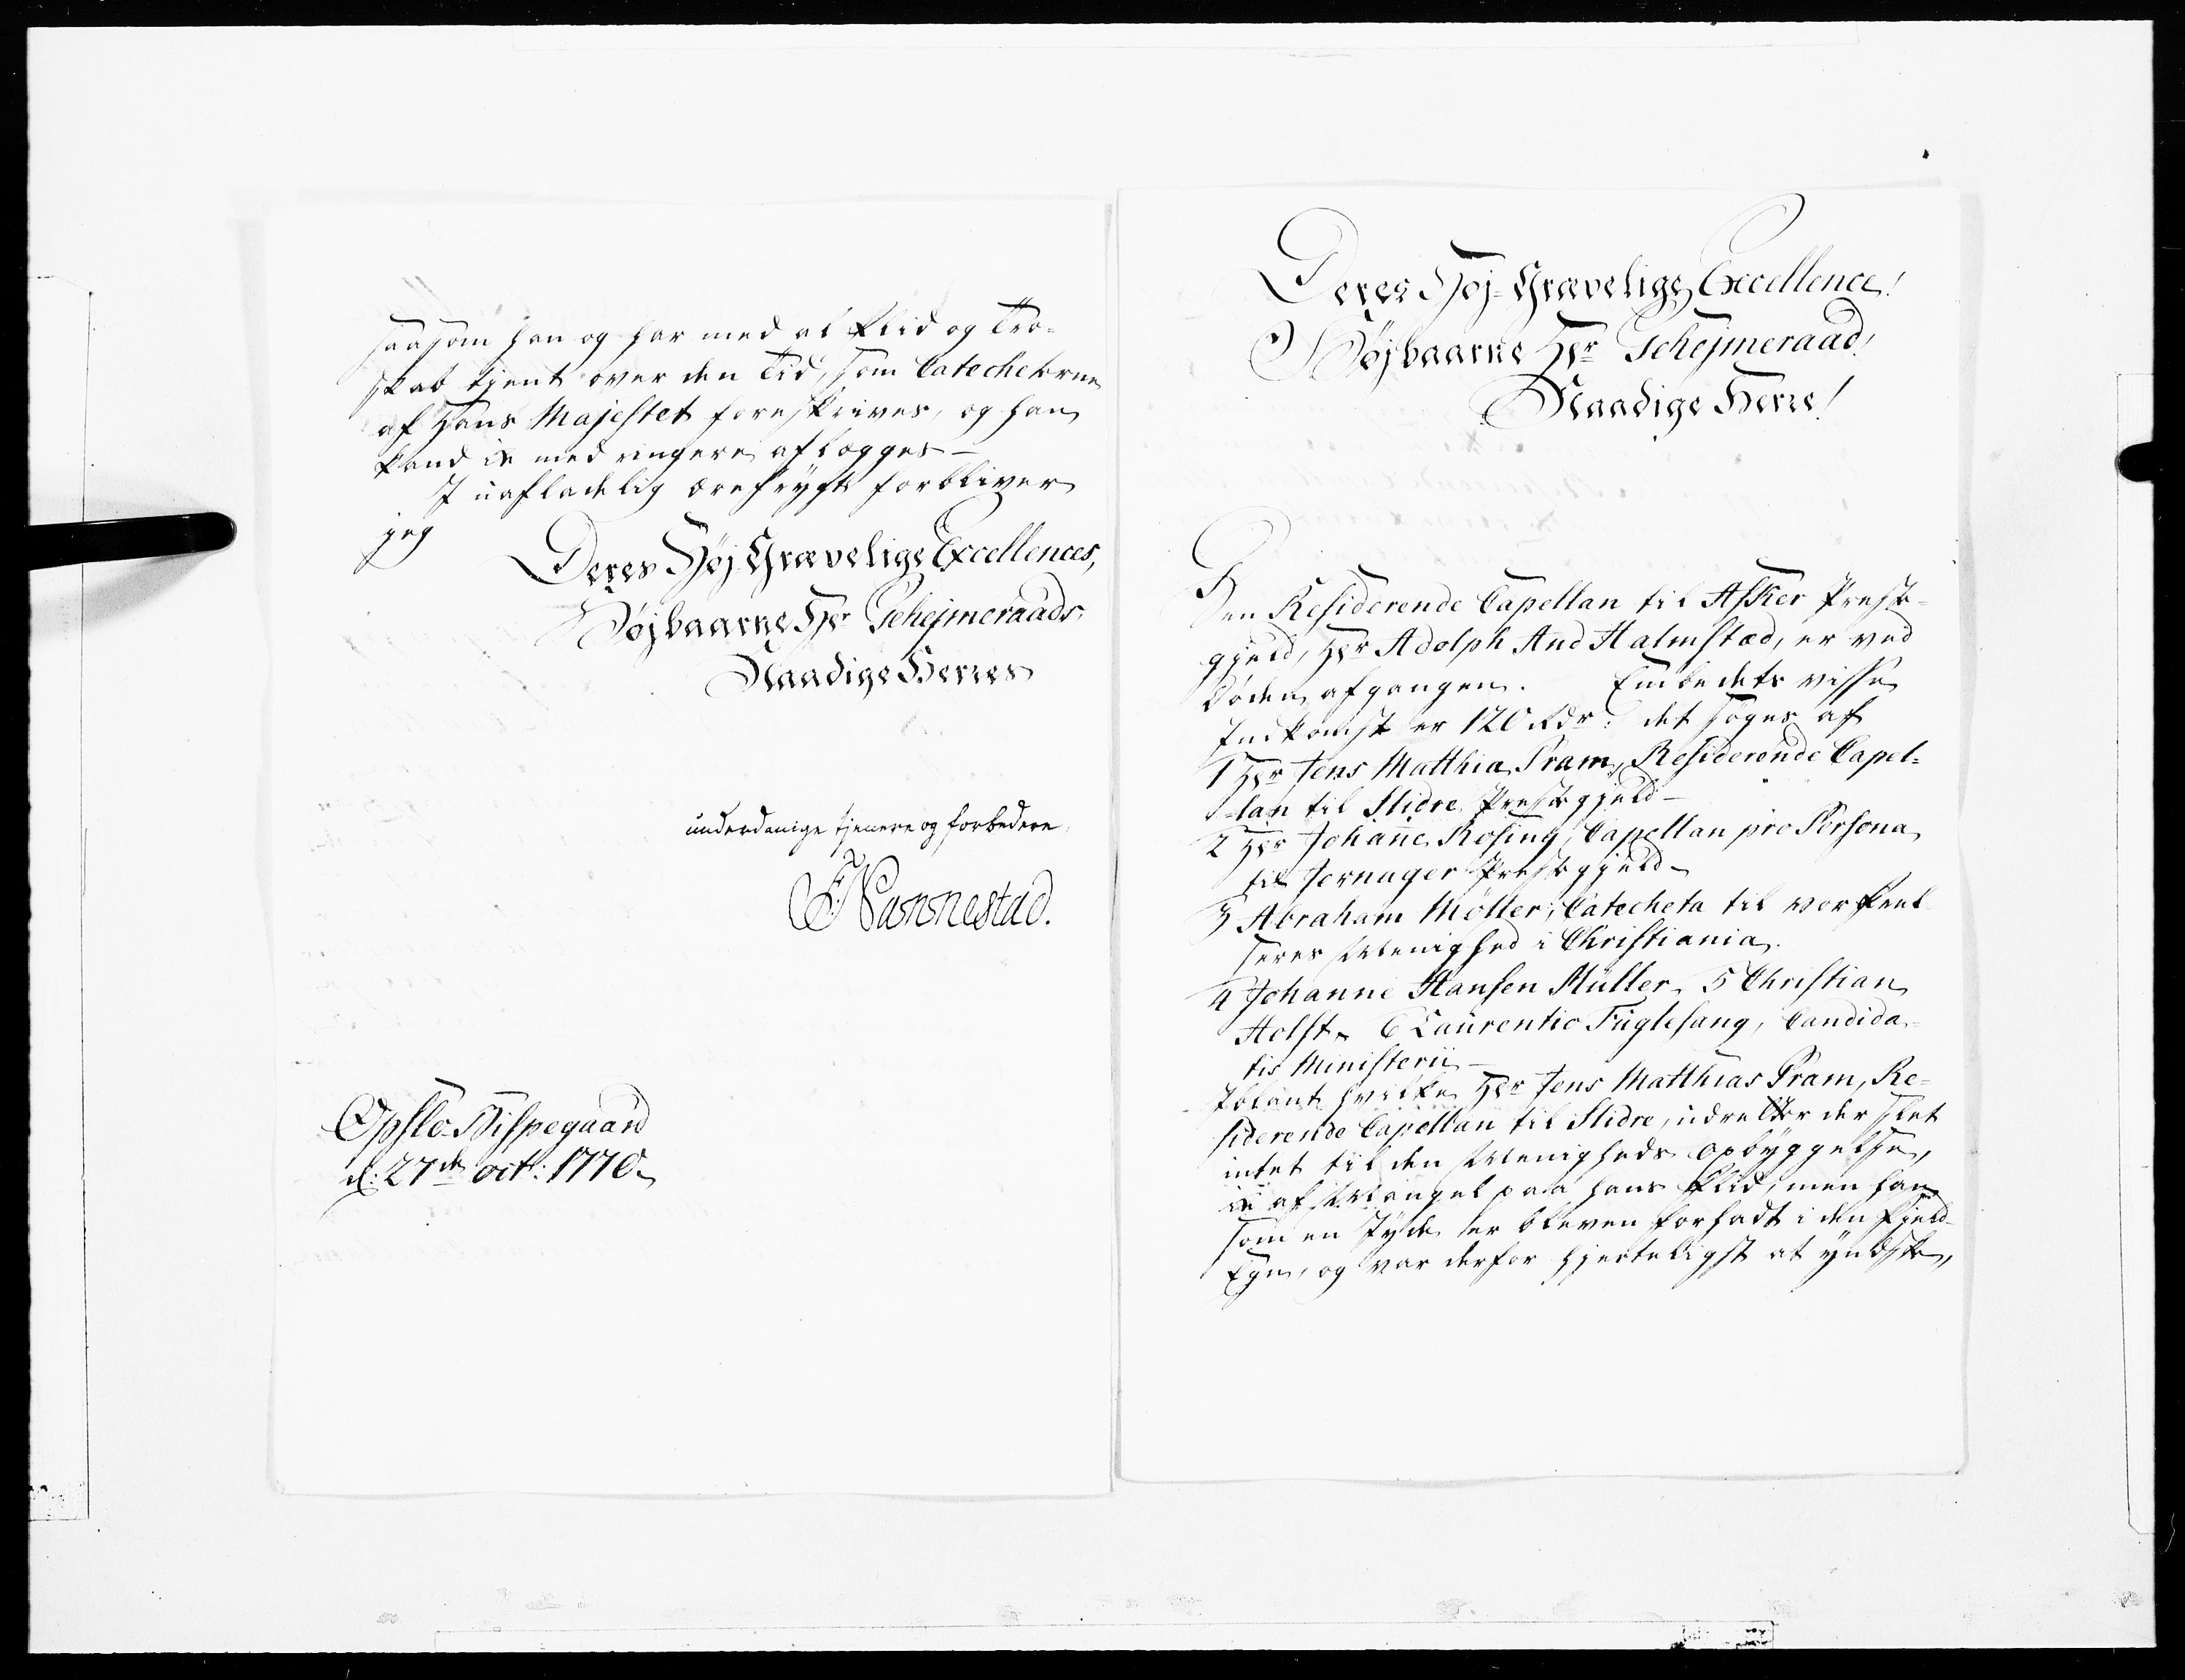 saasom han og har med al Flid og Tro-
skab tjent over den Tid, som Catecheterne
af Hans Majestet foreskrives, og han
kand ei med ringere aflægges -
I uafladelig ærefrygt forbliver
jeg
Deres Høj Grævelige Excellences,
Højbaarne Hr. Gehejmeraads,
Naadige Herres
underdanige tjenere og forbedere,
F Nannestad.
Opslo-Bispegaard
d: 27de octr: 1770.
Deres Høj-Grævelige Excellence!
Højbaarne Hr Gehejmeraad!
Naadige Herre!
Den Residerende Capellan til Asker Præste-
gjeld, Hr Adolph And Halmstæd, er ved
Døden afgangen. Embedets visse
Indkomst er 120 Rdr: det søges af
1 Hr Jens Matthia Pram, Residerende Capel-
lan til Slidre Præstegjeld -
2 Hr Johanne Rosing, Capellan pro Persona
til Jernager Præstegjeld -
3 Abraham Møller, Catecheta til vor Frel-
seres Menighed i Christiania.
4 Johanne Hansen Müller, 5 Christian
Holst, 6 Laurentio Fuglesang, Candida-
tis Ministerii -
Iblant hvilke Hr Jens Matthias Pram, Re-
siderende Capellan til Slidre, udretter der slet
intet til den Menigheds Opbyggelse,
ei af Mangel paa hans Flid, men han
som en Jyde er bleven forhadt i den Fjeld-
Egn, og var derfor hjerteligst at yndske,